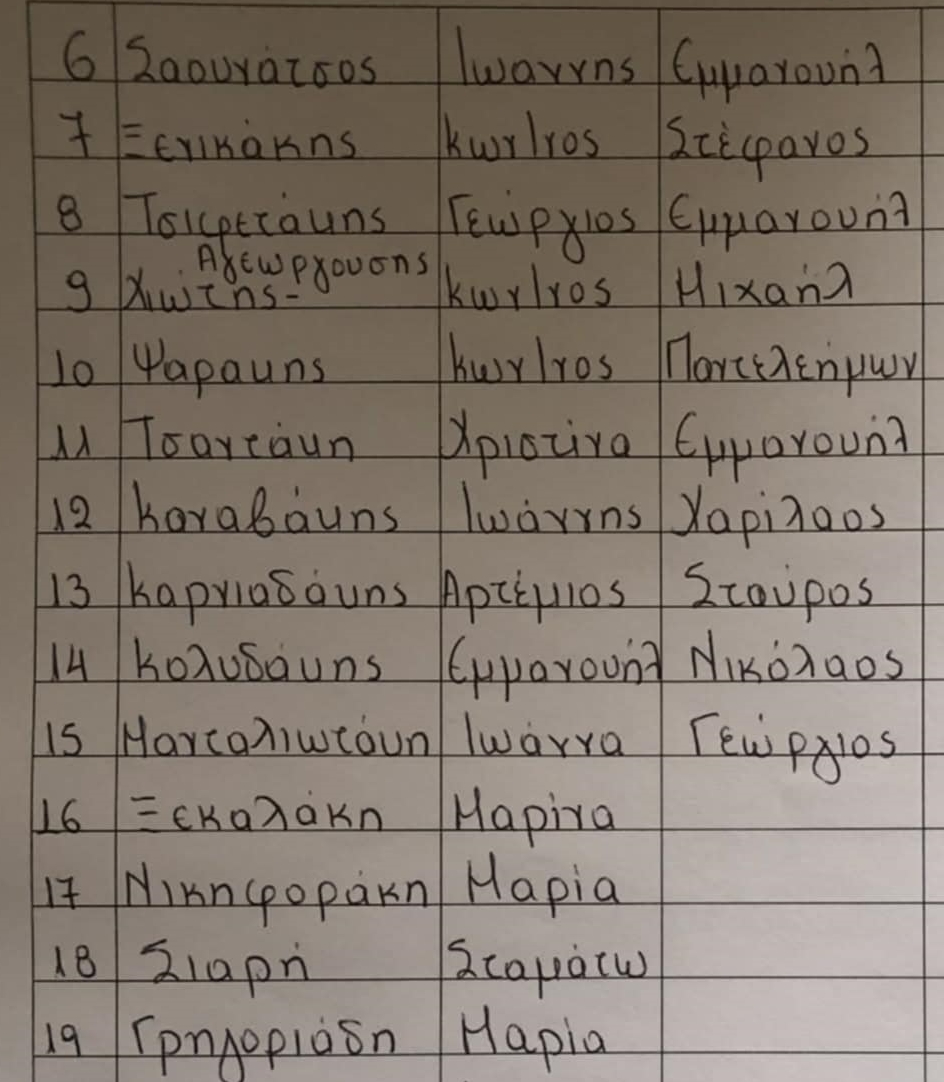 6 Σαουνάτσος Ιωάννης Εμμανουήλ
7 Ξενικάκης Κων/νος Στέφανος
8 Τσιφετάκης Γεώργιος Εμμανουήλ
Αγεωργούσης
9 Χιώτης- Κων/νος Μιχαήλ
10 Ψαρακης Κων/νος Παντελεήμων
11 Τσαντάκη Χριστίνα Εμμανουήλ
12 Καναβάκης Ιωάννης Χαρίλαος
13 Καρνιαδάκης Αρτέμιος Σταύρος
14 Κολυδάκης Εμμανουήλ Νικόλαος
15 Μανταλιωτάκη Ιωάννα Γεώργιος
16 Ξεκαλάκη Μαρίνα
17 Νικηφοράκη Μαρία
18 Σιαρή Σταμάτω
19 Γρηγοριάδη Μαρία